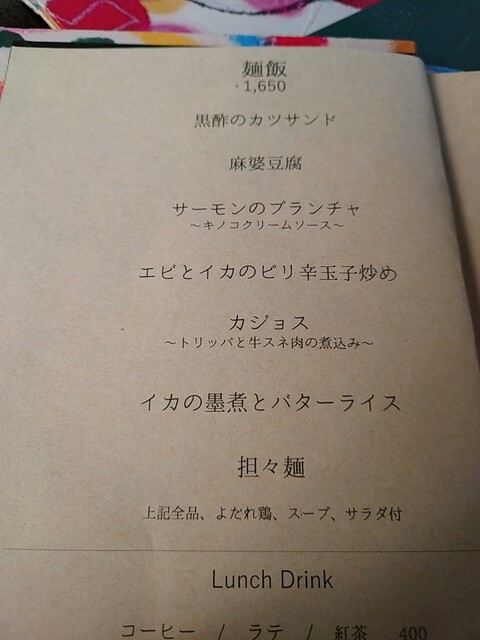 麺飯
・1,650
黒酢のカツサンド
麻婆豆腐
サーモンのプランチャ
～キノコクリームソース～
エビとイカのピリ辛玉子炒め
カジョス
～トリッパと牛スネ肉の煮込み～
イカの墨煮とバターライス
担々麺
上記全品、よだれ鶏、スープ、サラダ付
Lunch Drink
コーヒー / ラテ / 紅茶 400